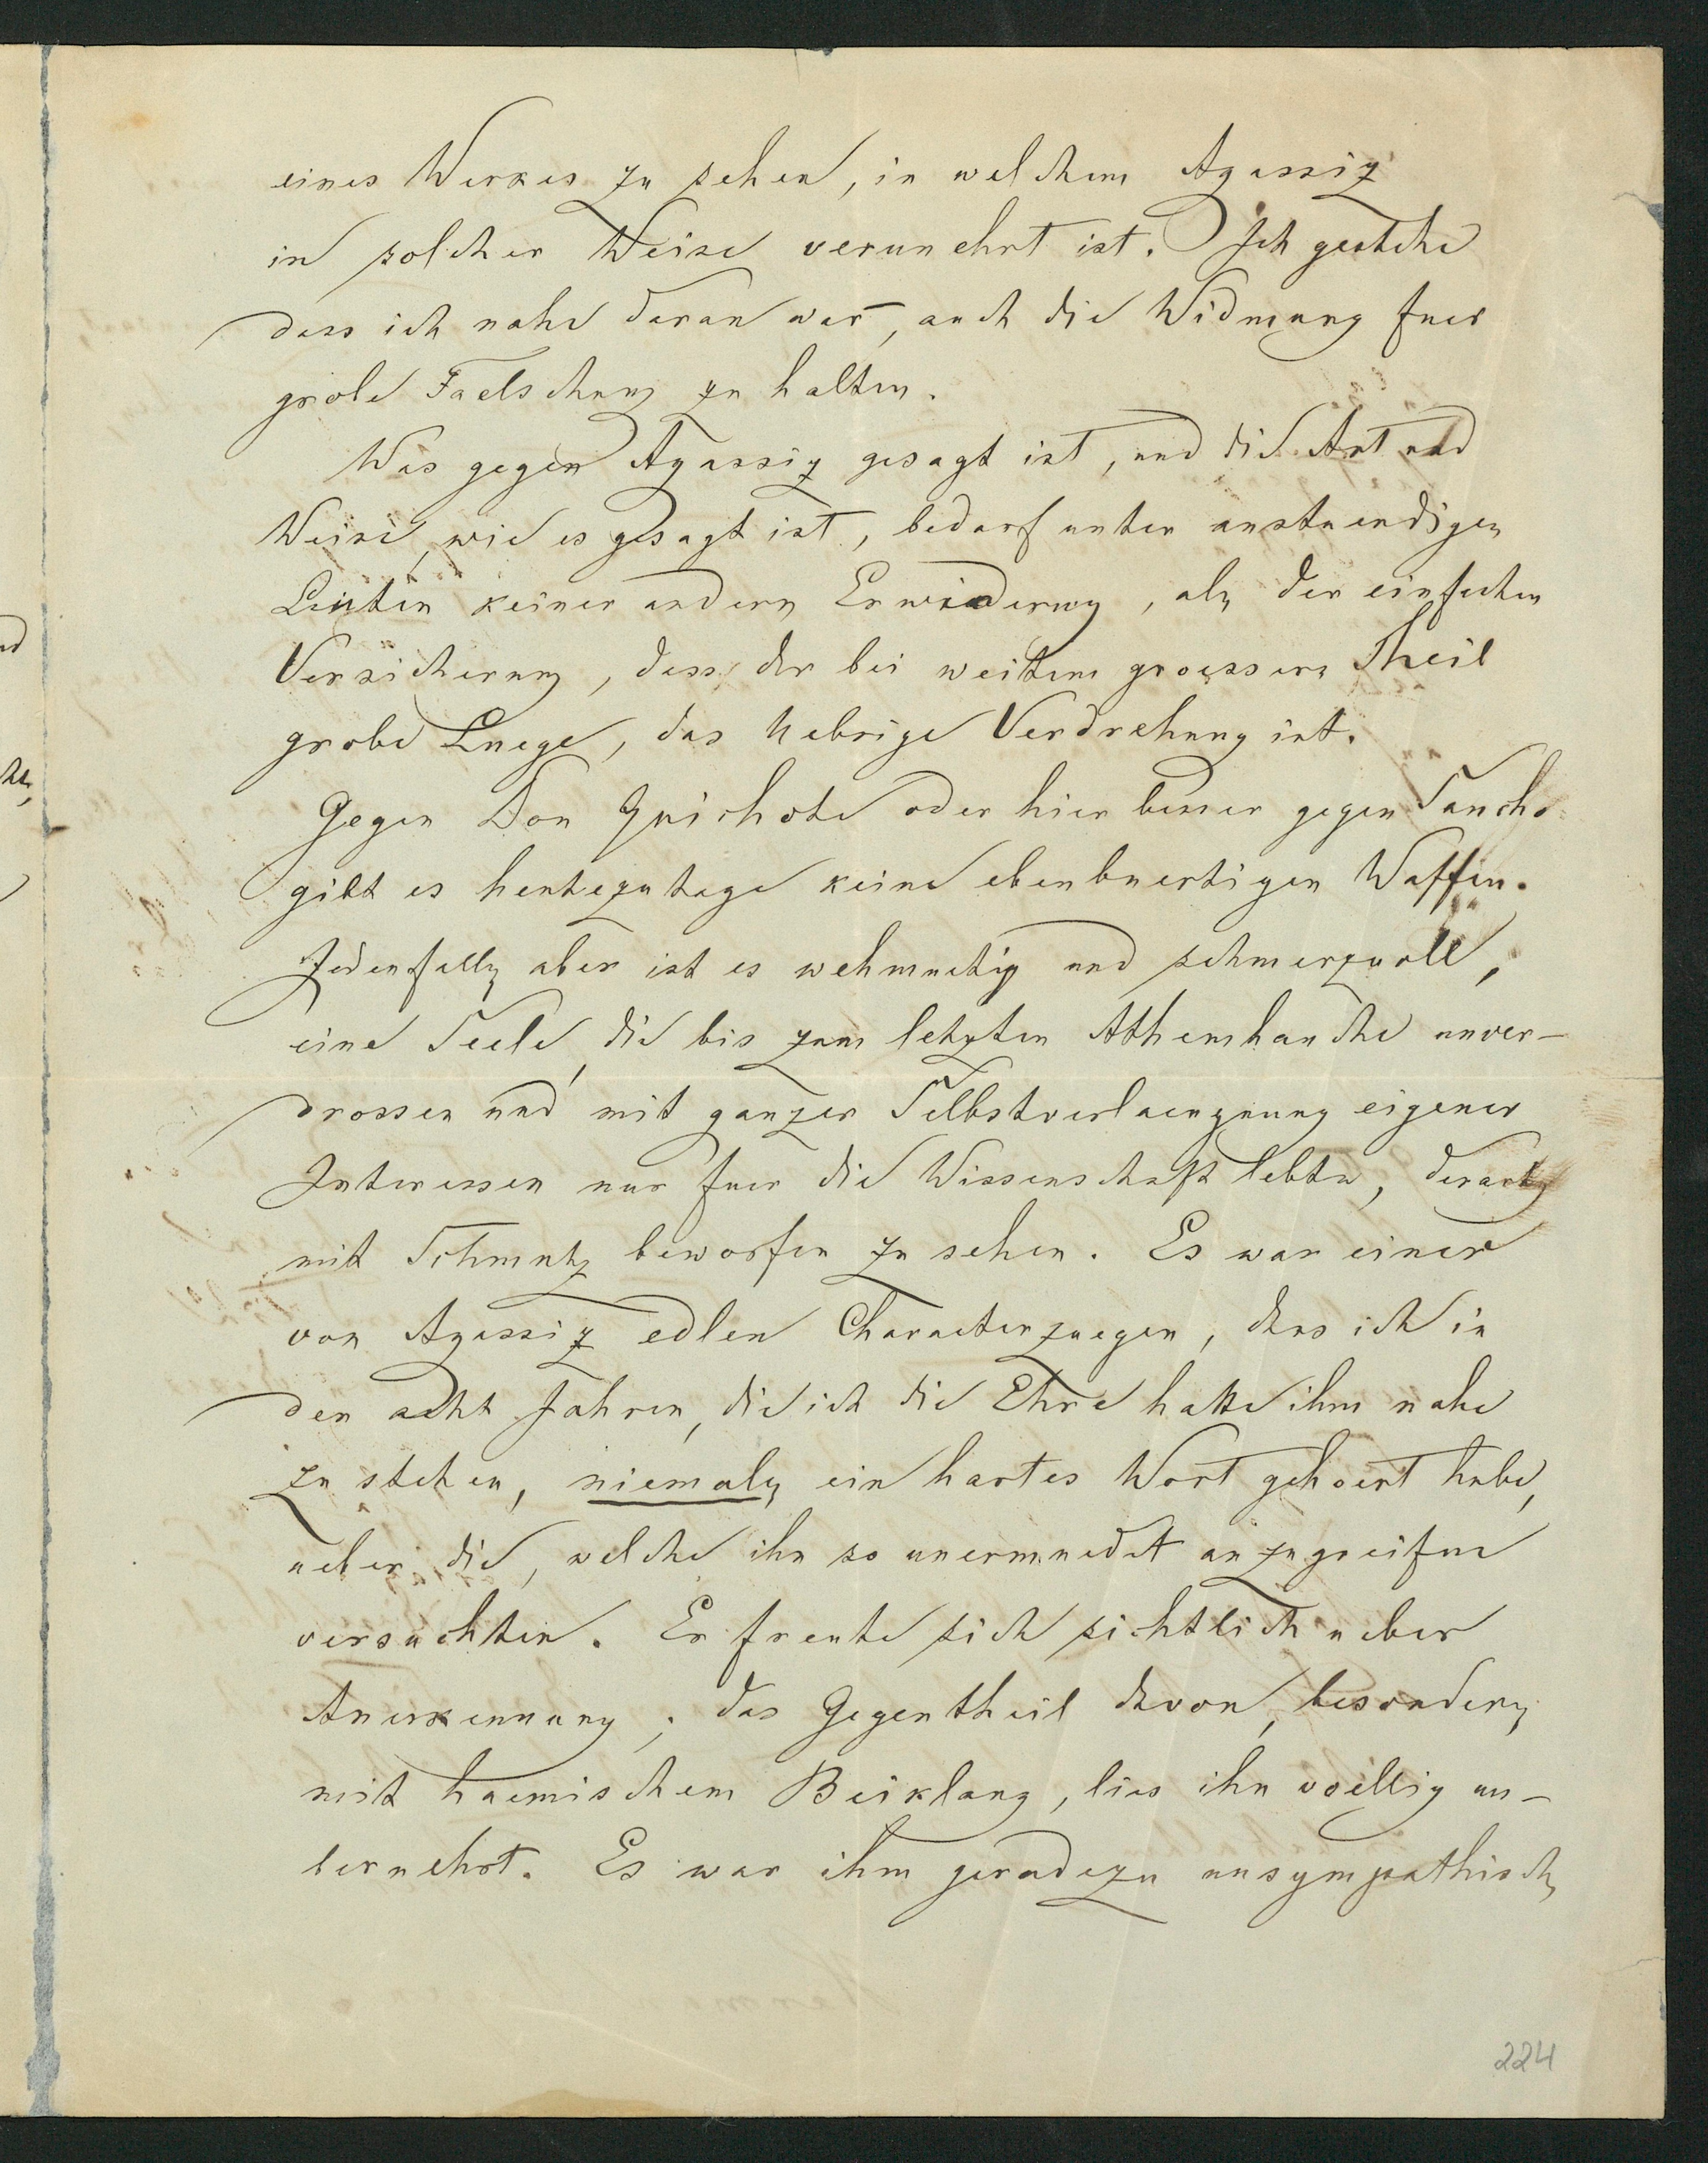 eines Werkes zu sehen, in welchem Agassiz
in solcher Weise verunehrt ist. Ich gestehe
dass ich nahe daran war, auch die Widmung fuer
grobe Faelschung zu halten.
Was gegen Agassiz gesagt ist, und die Art und
Weise, wie es gesagt ist, bedarf unter anstaendigen
Leuten keiner andern Erwiderung, als der einfachen
Versicherung, dass der bei weitem groessere Theil
grobe Luege, das Uebrige Verdrehung ist.
Gegen Don Quichote oder hier besser gegen Sancho
gibt es heutezutage keine ebenbuertigen Waffen.
Jedenfalls aber ist es wehmuetig und schmerzvoll,
eine Seele, die bis zum letzten Athemhauche unver-
drossen und mit ganzer Selbstverlaeugnung eigener
Interessen nur fuer die Wissenschaft lebte, derartig
mit Schmutz beworfen zu sehen. Es war einer
von Agassiz edlen Characterzuegen, dass ich in
den acht Jahren, die ich die Ehre hatte ihm nahe
zu stehen, niemals ein hartes Wort gehoert habe,
ueber die, welche ihn so unermuedet anzugreifen
versuchten. Er freute sich sichtlich ueber
Anerkennung; das Gegentheil davon, besonders
mit haemischem Beiklang, lies ihn voellig un-
beruehrt. Es war ihm geradezu unsympathisch,
224